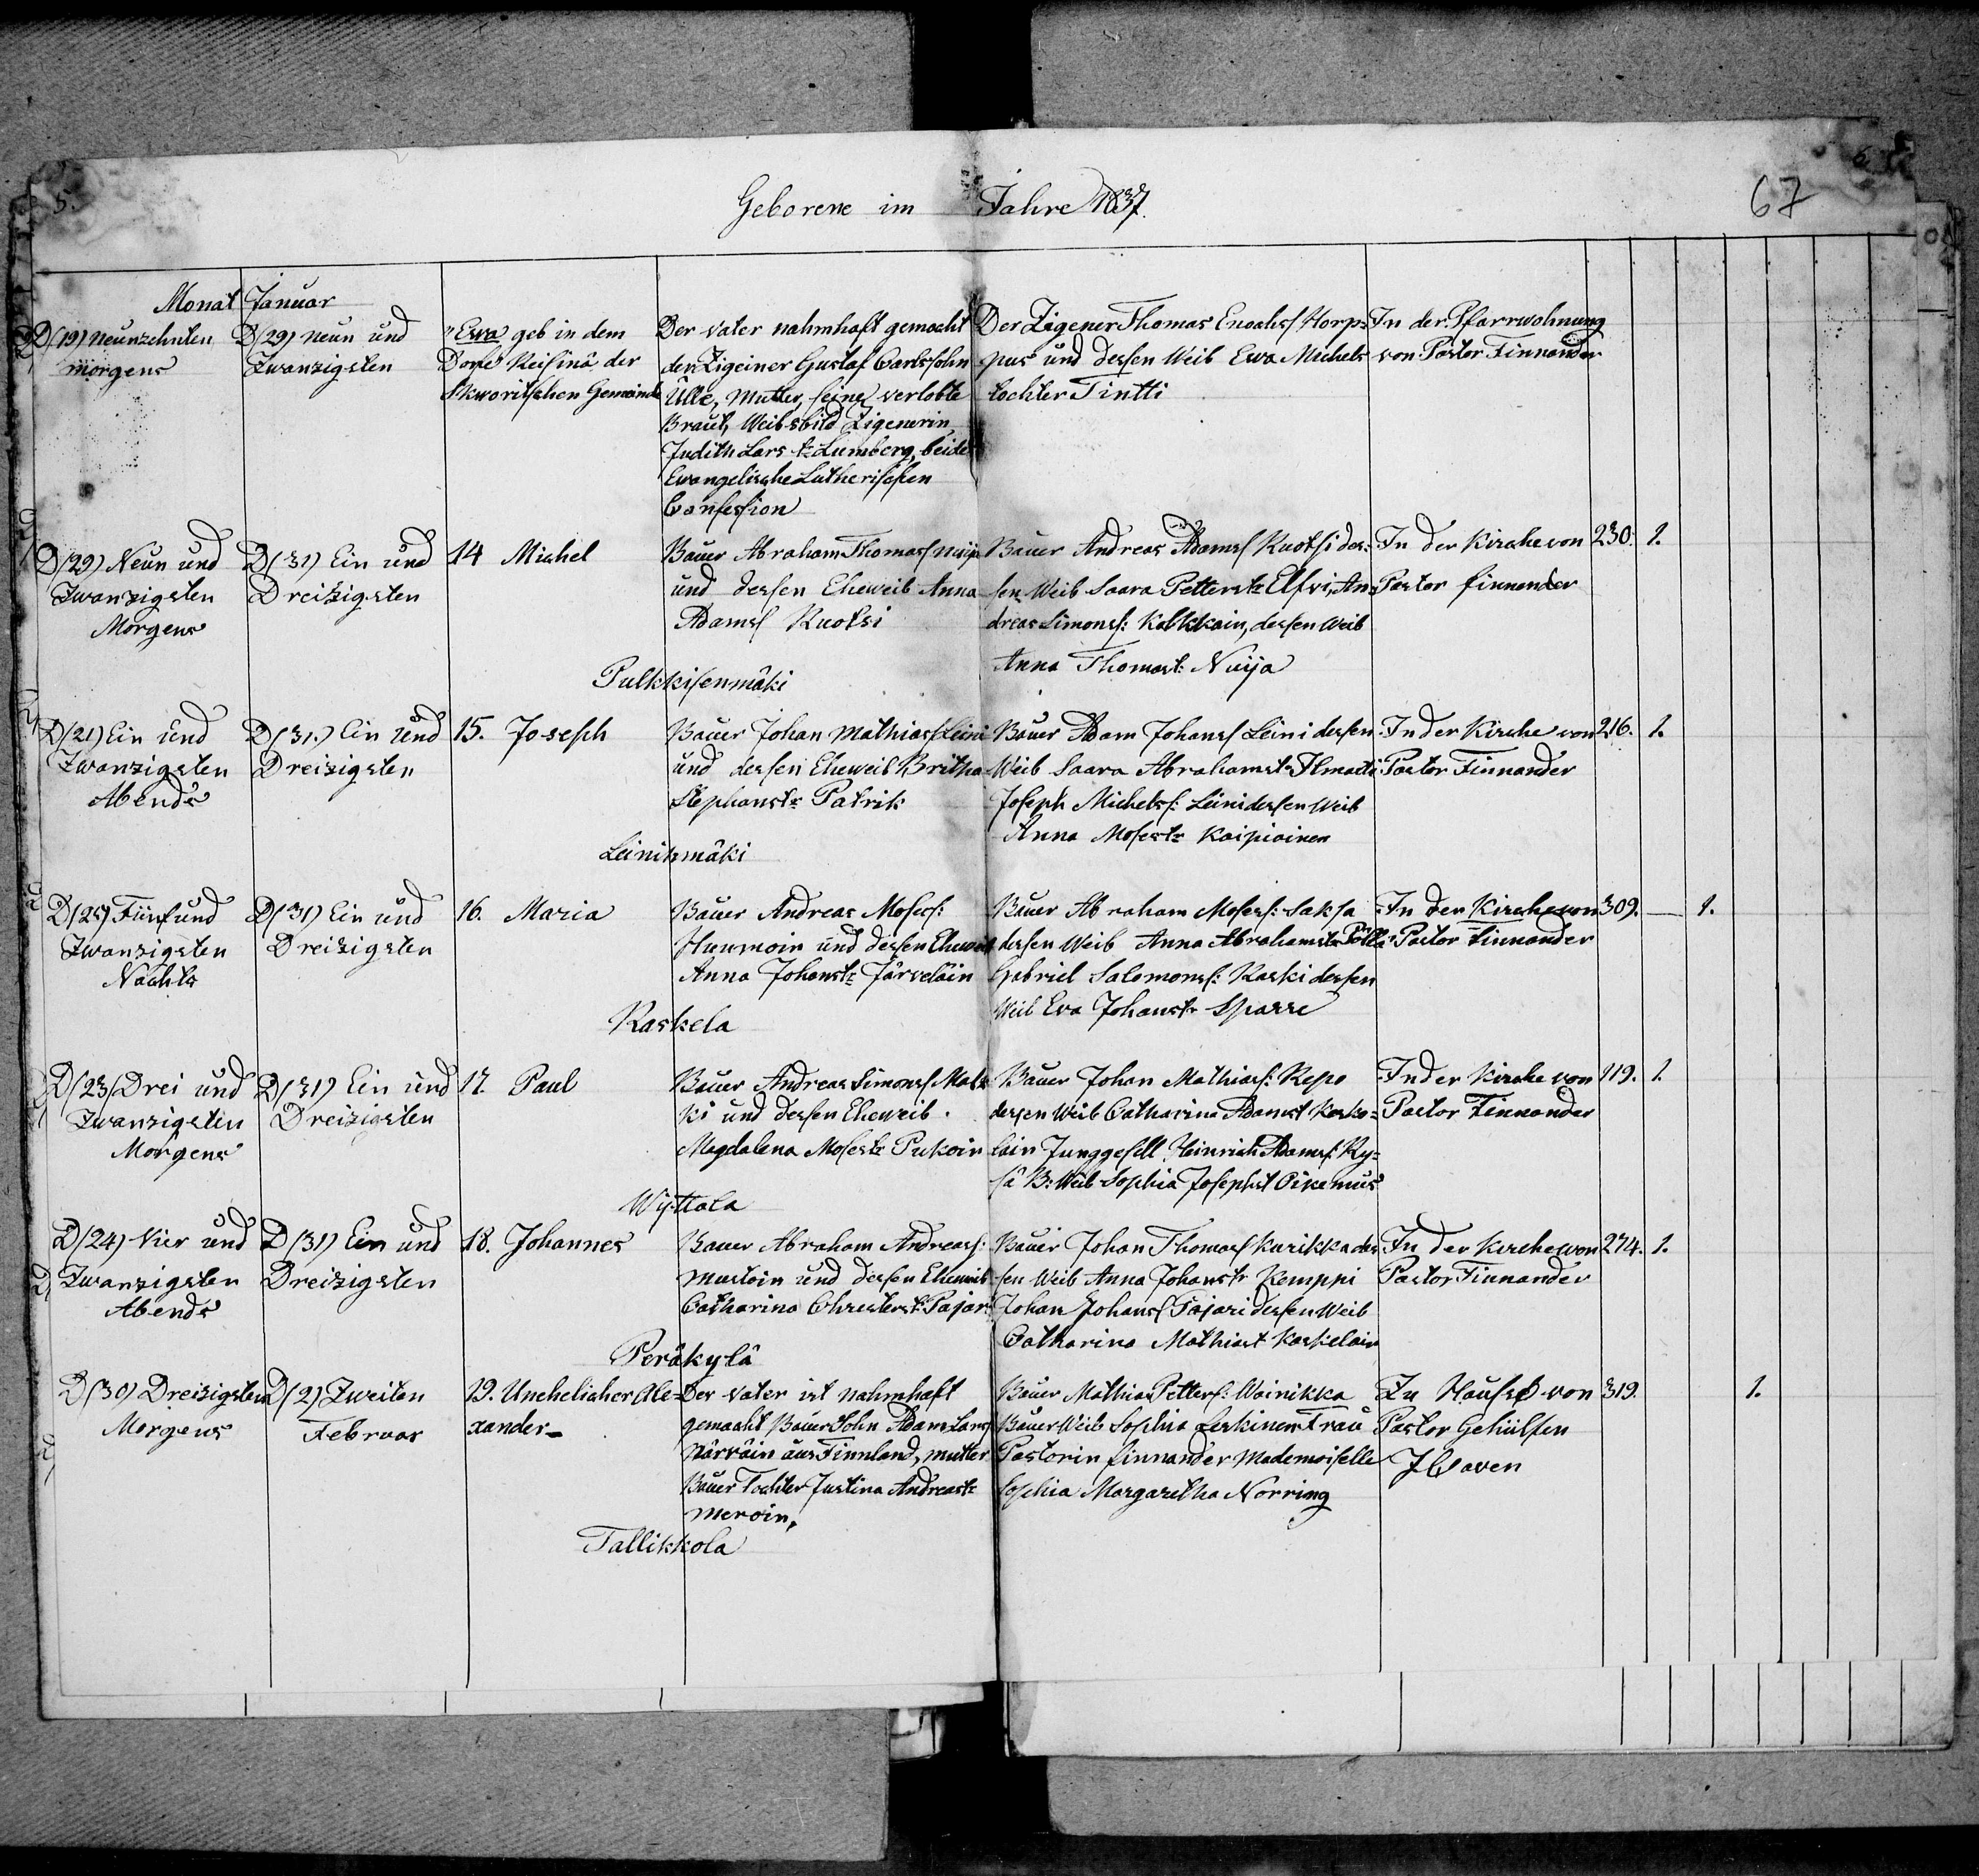 5.
6
67
Geborene im Jahre 1837.
Monat Januar
D (19) neunzehnten
morgens
D (29) neun und
Zwanzigsten
"Ewa geb in dem
Dorfe Keisinä der
Skworitschen Gemeinde
Der vater nahmhaft gemacht
den Zigeiner Gustaf Carlssohn
Ülle, Mutter, seine verlobte
Braut, Weibsbild Zigenerin
Judith Lars tr Lumberg, beide
Evangelische Lutherischen
Confession
Der Zigener Thomas Enochs Horp=
pus und dessen Weib Ewa Michels
tochter Tintti
In der Pfarrwohnung
von Pastor Finnander
D (29) Neun und
Zwanzigsten
Morgens
D (31) Ein und
Dreizigsten
14 Michel
Bauer Abraham Thomas Nuija
und dessen Eheweib Anna
Adams Ruotsi
Bauer Andreas Adams Ruotsi des=
sen Weib Saara Petterstr Elfvi, An=
dreas Simons: Kolkkain, dessen Weib
Anna Thomast: Nuija
In der Kirche von
Pastor Finnander
230. 1.
Pulkkisenmäki
D (21) Ein und
Zwanzigsten
Abends
D (31.) Ein und
Dreizigsten
15. Joseph
Bauer Johan Mathias Leini
und dessen Eheweib Britha
Stephanstr Patrik
Bauer Adam Johans Leini dessen
Weib Saara Abrahamstr Ilmatti
Joseph Michels: Leini dessen Weib
Anna Mosestr Kaipiainen
In der Kirche von
Pastor Finnander
216. 1.
Leinikmäki
D (25) Fünf und
Zwanzigsten
Nachts
D (31) Ein und
Dreizigsten
16. Maria
Bauer Andreas Moses:
Hunmoin und dessen Eheweib
Anna Johanstr Järveläin
Bauer Abraham Moses: Saksa
dessen Weib Anna Abrahamstr Pöllä
Gabriel Salomons: Kaski dessen
Weib Eva Johanstr Sparre
In der Kirche von
Pastor Finnander
309. — 1.
Kaskela
D (23) Drei und
Zwanzigsten
Morgens
D (31) Ein und
Dreizigsten
17. Paul
Bauer Andreas Simons Mal=
ki und dessen Eheweib.
Magdalena Mosestr Pukoin
Bauer Johan Mathias: Repo
dessen Weib Catharina Adamst Koske=
lain Junggesell Heinrich Adams: Ry=
sä B: Weib Sophia Josephst Oikemus
In der Kirche von
Pastor Finnander
119. 1.
Wyttola
D (24) Vier und
Zwanzigsten
Abends
D (31) Ein und
Dreizigsten
18. Johannes
Bauer Abraham Andreas:
Mustoin und dessen Eheweib
Catharina Christerst: Pajari
Bauer Johan Thomas Kurikka des=
sen Weib Anna Johanstr Kemppi
Johan Johans Pajari dessen Weib
Catharina Mathiast Koskelain
In der Kirche von
Pastor Finnander
274. 1.
Peräkylä
D (30) Dreizigsten
Morgens
D (2) Zweiten
Februar
19. Unehelicher Ale=
xander
Der vater ist nahmhaft
gemacht Bauer Sohn Adam Lars
Närväin aus Finnland, mutter
Bauer Tochter Justina Andreastr
Meroin,
Bauer Mathias Petters: Wainikka
Bauer Weib Sophia Leskinen Frau
Pastorin Finnander Mademoiselle
Sophia Margaretha Norring
Zu Hause von
Pastor Gehülfen
319. 1.
Tallikkola